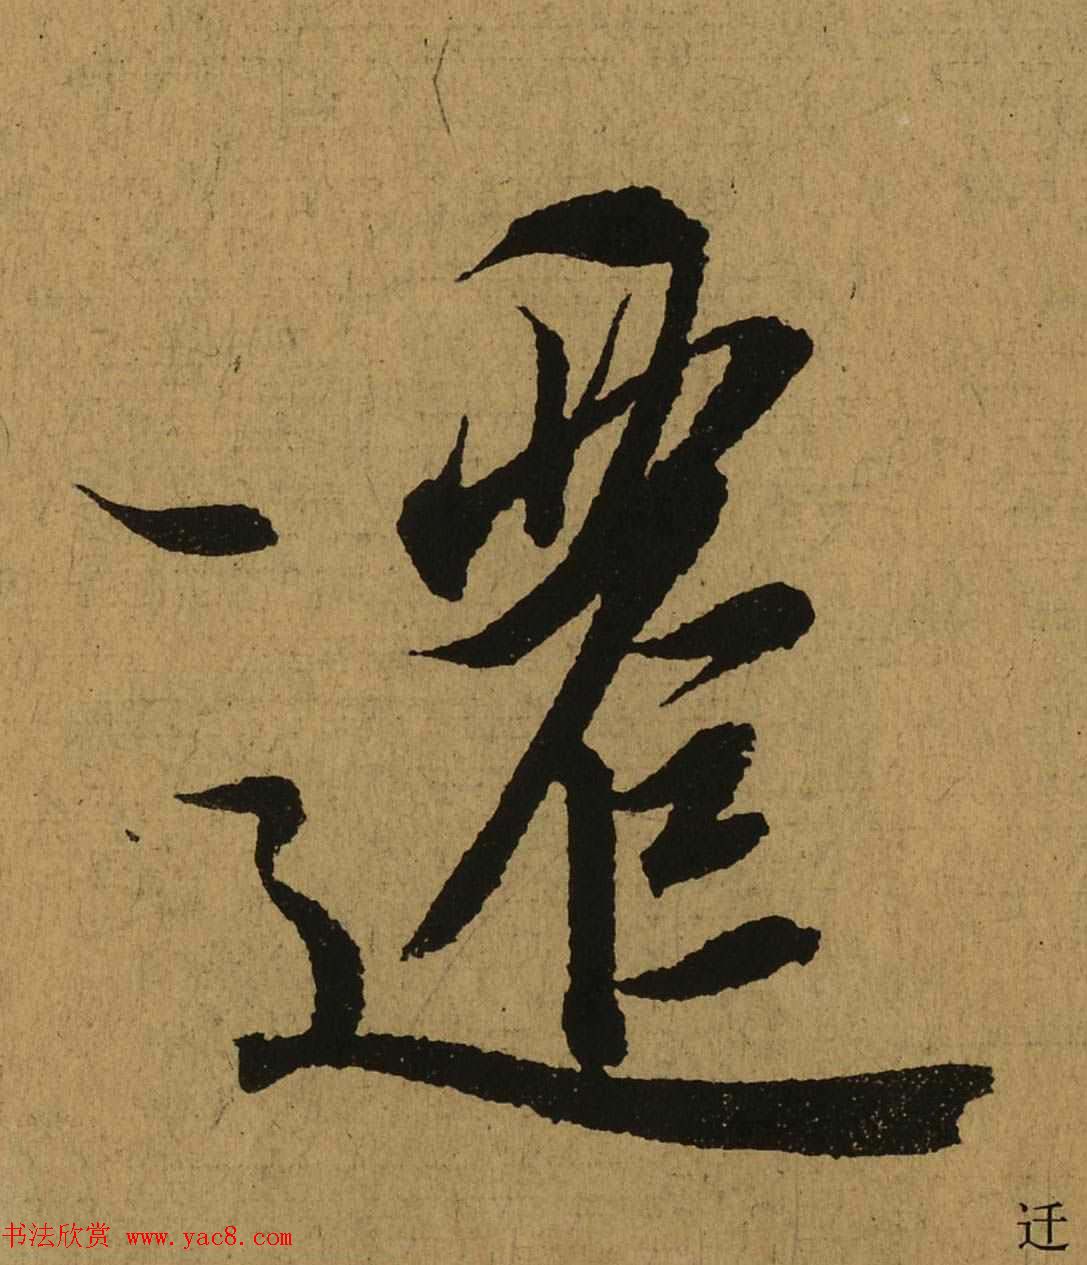 遷
迁
书法欣赏 www.yac8.com